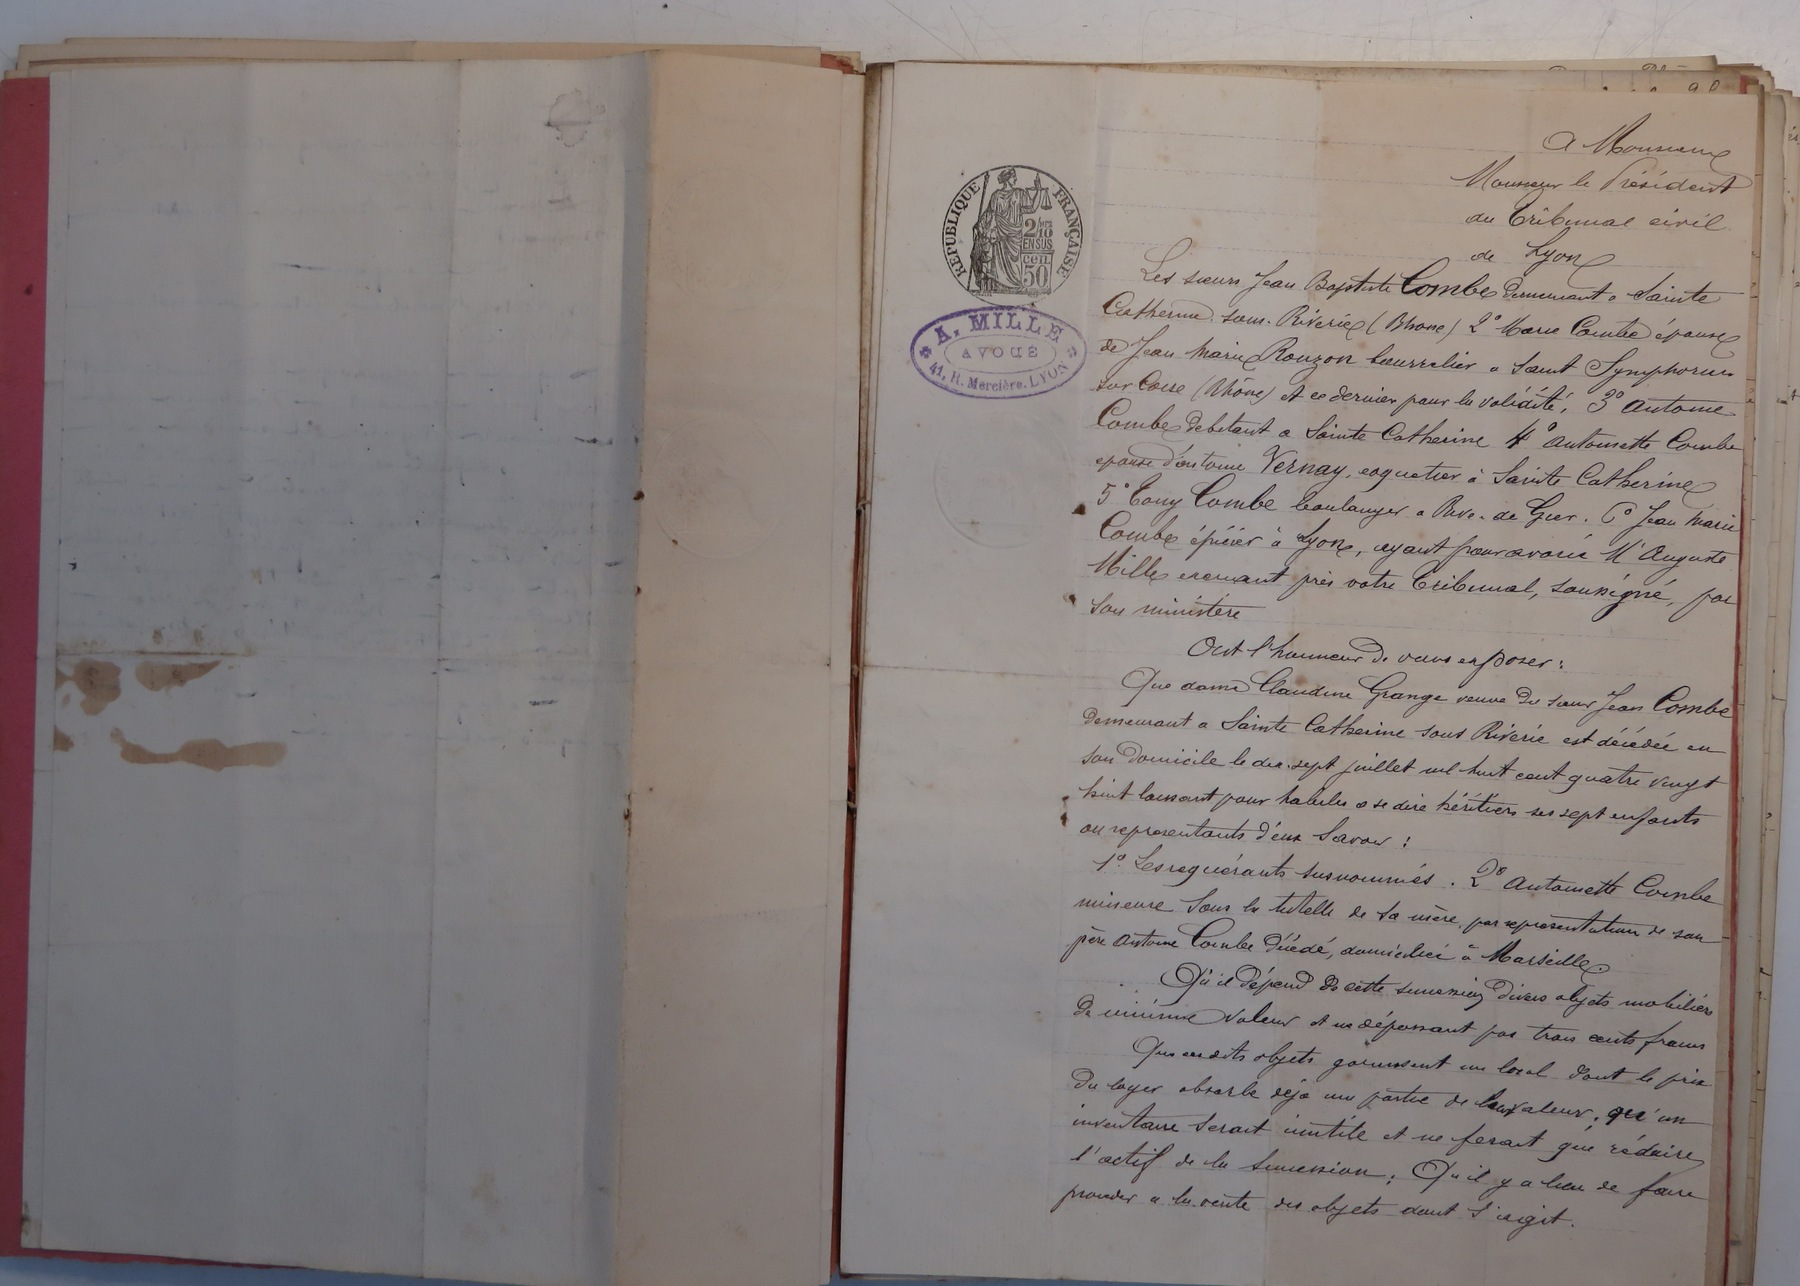 RÉPUBLIQUE FRANÇAISE
2/10
EN SUS
50
CEN.
A. MILLE
AVOUÉ
41, R. Mercière. LYON
A Monsieur
Monsieur le Président
du Tribunal civil
de Lyon
Les sieurs Jean Baptiste Combe demeurant a Sainte
Catherine. sous. Riverie (Rhone) 2° Marie Combe épouse
de Jean Marie Rouzon bourrelier a Saint Symphorien
sur Coise (Rhône) et ce dernier pour la validité, 3° Antoine
Combe debitant a Sainte Catherine 4° Antoinette Combe
epouse d'Antoine Vernay, coquetier à Sainte Catherine
5° Tony Combe boulanger a Rive. de Gier. 6° Jean Marie
Combe épicier à Lyon, ayant pour avoué Me Auguste
Mille exerçant près votre Tribunal, soussigné, par
son ministère
Ont l'honneur de vous exposer:
Que dame Claudine Grange veuve du sieur Jean Combe
demeurant a Sainte Catherine sous Riverie est décédée en
son domicile le dix.sept juillet mil huit cent quatre vingt
huit laissant pour habiles a se dire héritiers ses sept enfants
ou representants d'eux Savoir:
1° Les requérants susnommés. 2° Antoinette Combe
mineure sous la tutelle de sa mère, par représentation de son
père Antoine Combe décédé, domicilié à Marseille.
Qu'il dépend de cette succession divers objets mobiliers
de minime valeur et ne dépassant pas trois cents francs
Que ces dits objets garnissent un local dont le prix
du loyer absorbe déjà une partie de leur valeur, qu'un
inventaire serait inutile et ne ferait que réduire
l'actif de la succession; Qu'il y a lieu de faire
proceder a la vente des objets dont s'agit.